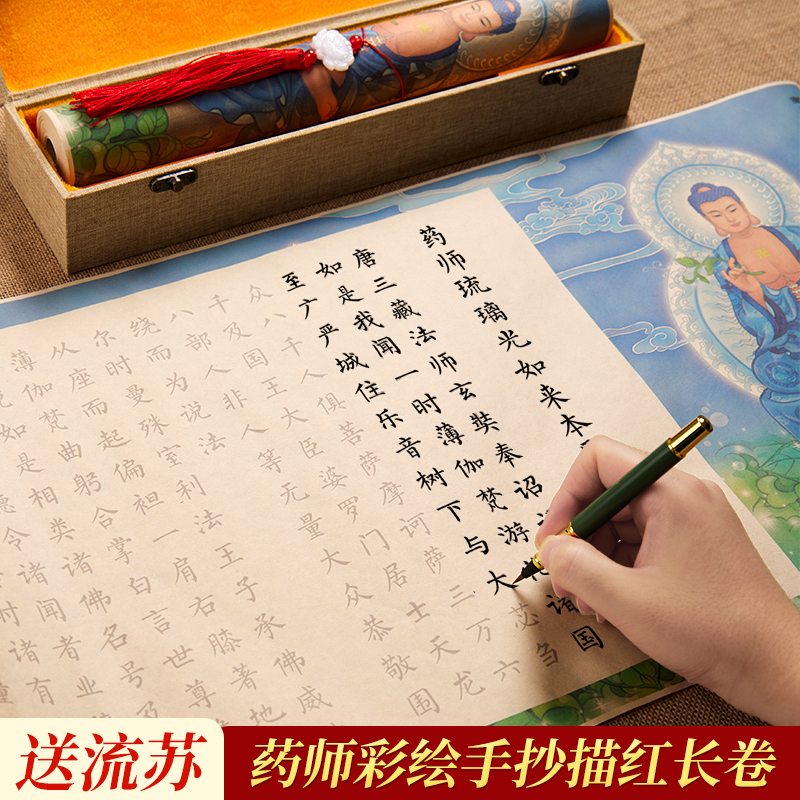 药师琉璃光如来本
唐三藏法师玄奘奉诏
如是我闻一时薄伽梵游化诸国
至广严城住乐音树下与大苾刍
众八千人俱菩萨摩诃萨三万六
千及国王大臣婆罗门居士天龙
八部人非人等无量大众恭敬围
绕而为说法
尔时曼殊室利法王子承佛威
从座而起偏袒一肩右膝著地
薄伽梵曲躬合掌白言世尊
如是相类诸佛名号及
令诸闻者业
时诸有
送流苏
药师彩绘手抄描红长卷